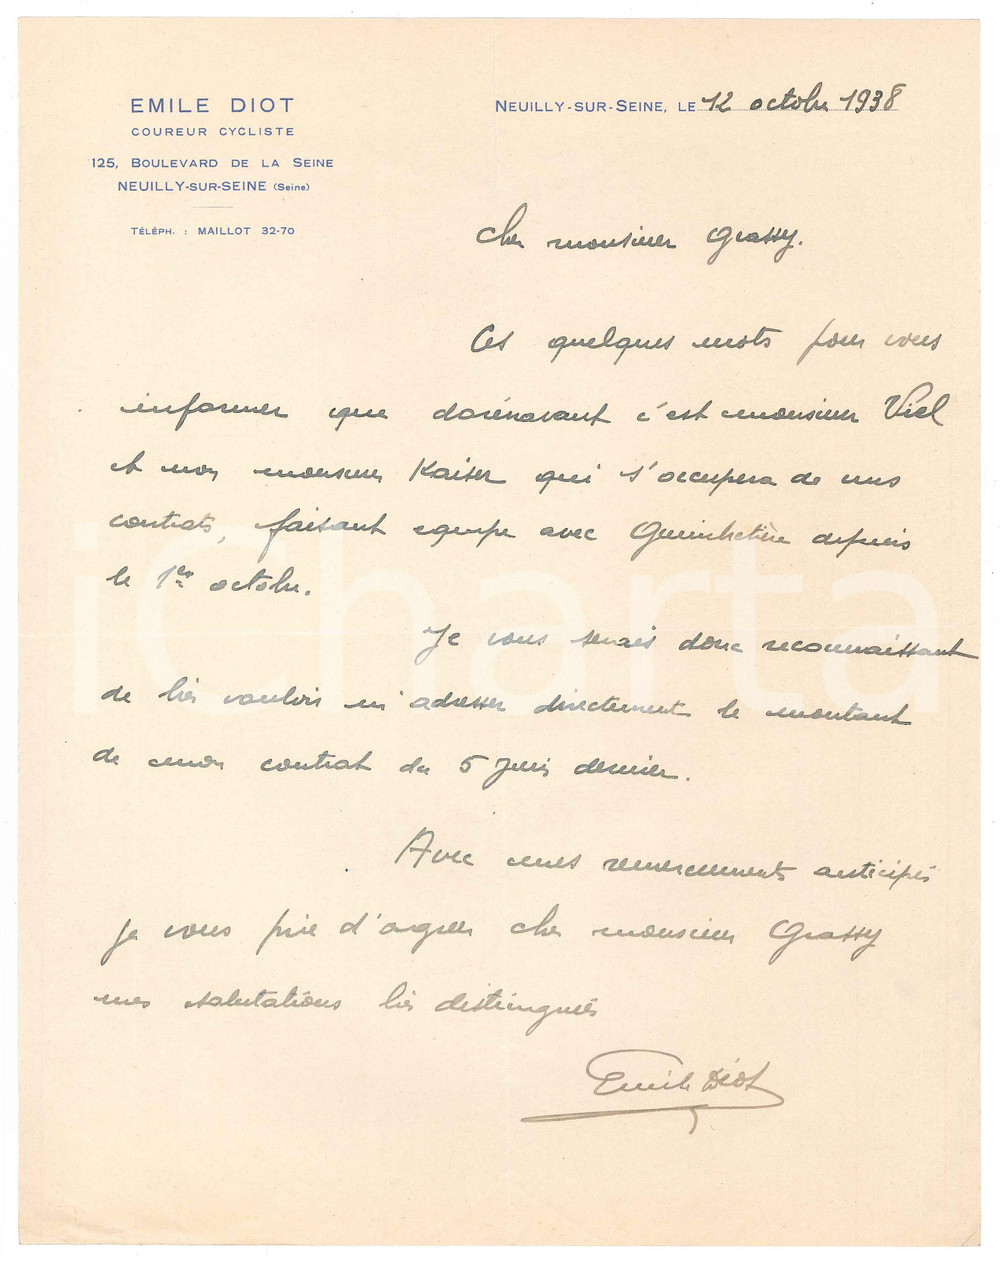 EMILE DIOT
COUREUR CYCLISTE
125, BOULEVARD DE LA SEINE
NEUILLY-SUR-SEINE (Seine)
TÉLÉPH. : MAILLOT 32-70
NEUILLY-SUR-SEINE, LE 12 octobre 1938
Cher monsieur Grassy.
Ces quelques mots pour vous
informer que dorénavant c'est monsieur Viel
et non monsieur Kaiser qui s'occupera de mes
contrats, faisant equipe avec depuis
le 1er octobre.
Je vous serais donc reconnaissant
de bien vouloir m'adresser directement le montant
de mon contrat du 5 Juin dernier.
Avec mes remerciements anticipés
je vous prie d'agréer cher monsieur Grassy
mes salutations très distinguées
Emile Diot
iCharta